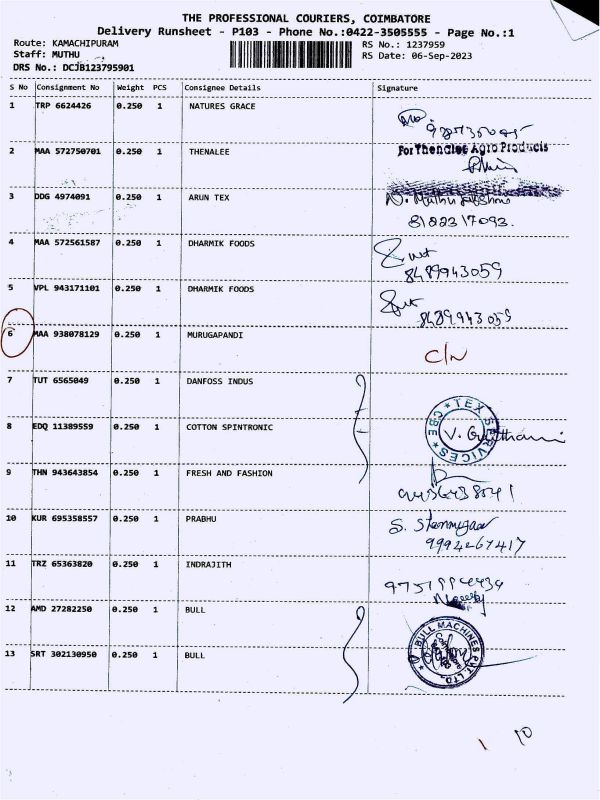 THE PROFESSIONAL COURIERS, COIMBATORE
Delivery Runsheet - P103 - Phone No.:0422-3505555 - Page No.:1
Route: KAMACHIPURAM RS No.: 1237959
Staff: MUTHU RS Date: 06-Sep-2023
DRS No.: DCJB123795901
S No Consignment No Weight PCS Consignee Details Signature
1 TRP 6624426 0.250 1 NATURES GRACE
2 MAA 572750701 0.250 1 THENALEE For Thenalee Agro Products
3 DDG 4974091 0.250 1 ARUN TEX
8182317093.
4 MAA 572561587 0.250 1 DHARMIK FOODS
8489943059
5 VPL 943171101 0.250 1 DHARMIK FOODS
8489943059
6 MAA 938078129 0.250 1 MURUGAPANDI
C/N
7 TUT 6565049 0.250 1 DANFOSS INDUS
8 EDQ 11389559 0.250 1 COTTON SPINTRONIC TEX SERVICES * CBE *
9 THN 943643854 0.250 1 FRESH AND FASHION
10 KUR 695358557 0.250 1 PRABHU
9994267417
11 TRZ 65363820 0.250 1 INDRAJITH
12 AMD 27282250 0.250 1 BULL
13 SRT 302130950 0.250 1 BULL BULL MACHINES PVT. LTD.
1 10